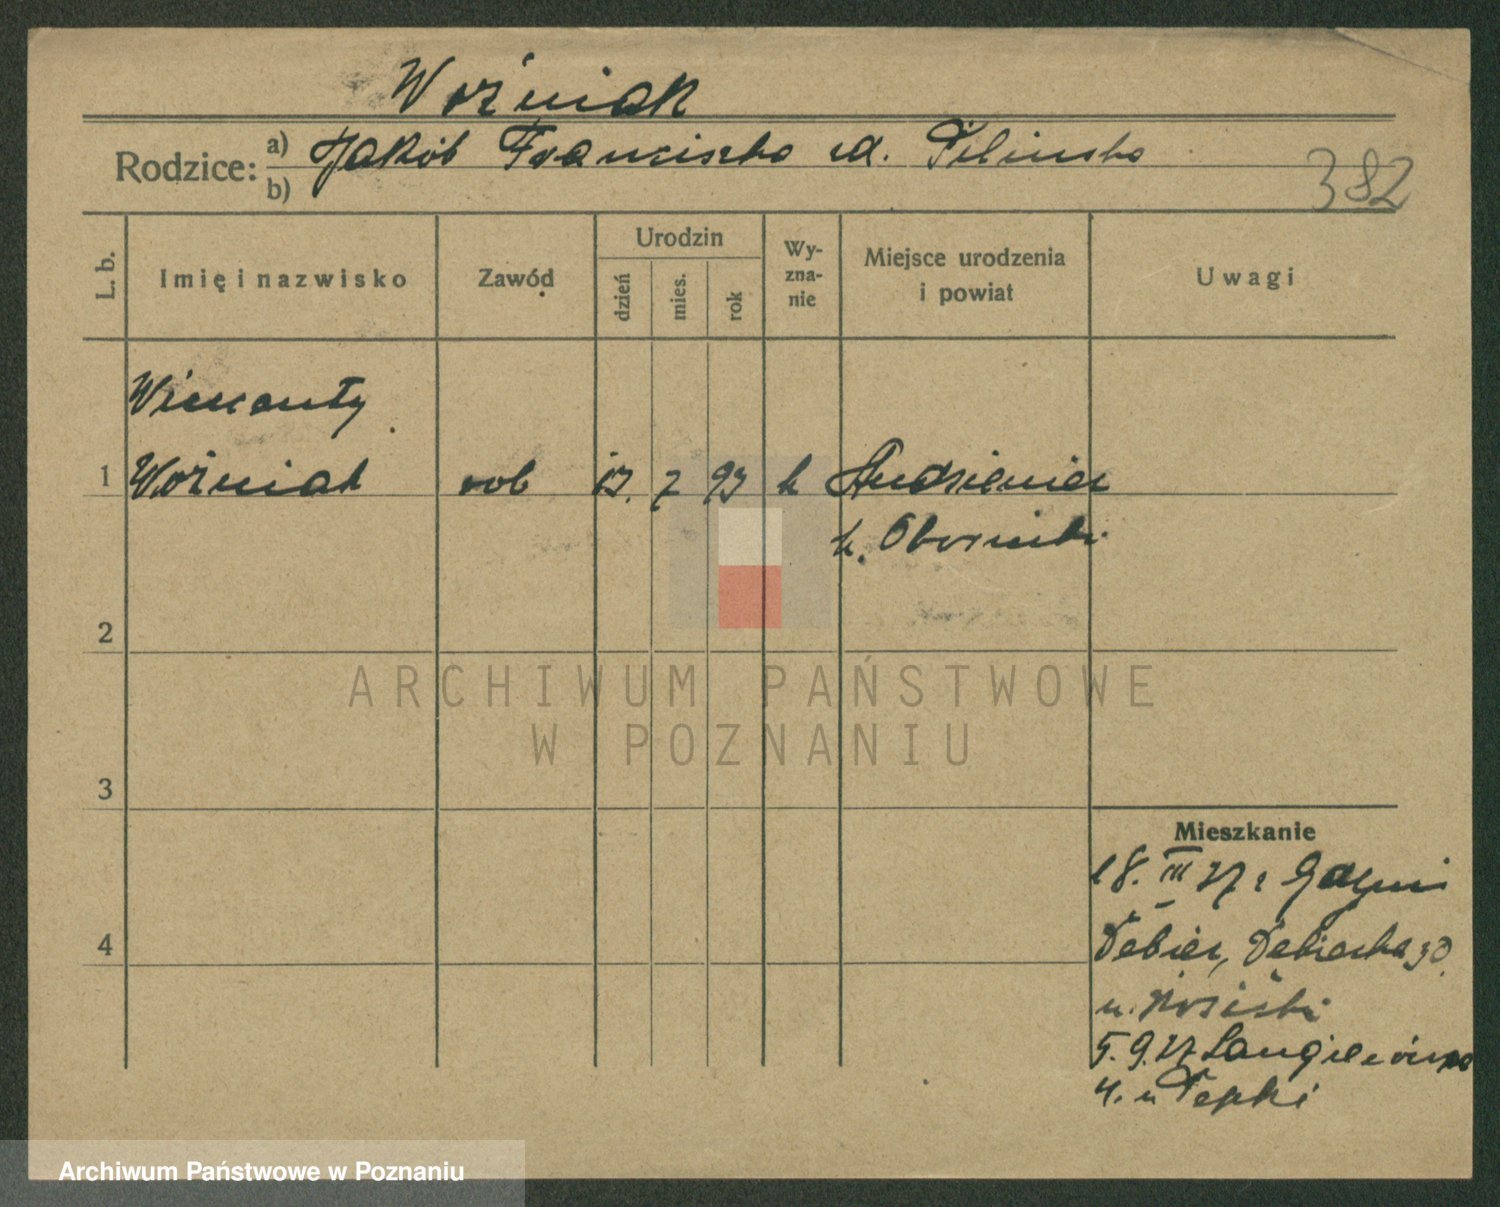 Woźniak
Rodzice: a) Jakób Franciszka
b)
382
L. b.
Imię i nazwisko
Zawód
Urodzin
dzień
mies.
rok
Wy-
zna-
nie
Miejsce urodzenia
i powiat
Uwagi
Wincenty
1 Woźniak rob 7 93 k
k. Oborniki
2
3
4
Mieszkanie
18. III 27 z Gdyni
Dębiec, 30
u.
5. 9. 27 Langiewicza
4. u
ARCHIWUM PAŃSTWOWE
W POZNANIU
Archiwum Państwowe w Poznaniu